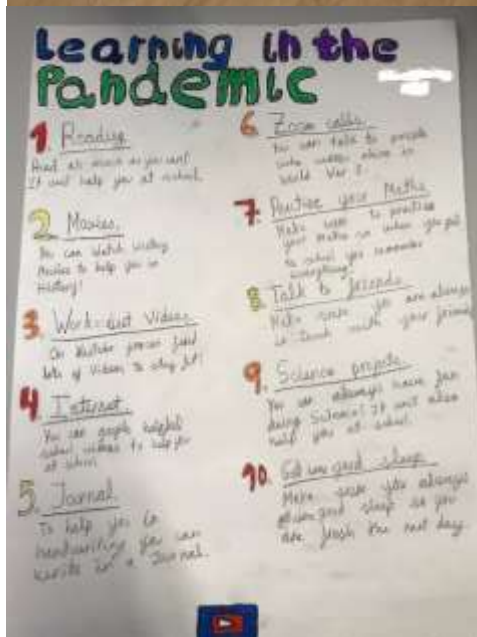 Learning in the
Pandemic
1. Reading
Read as much as you can!
It will help you at school.
2. Movies
You can watch History
Movies to help you in
History!
3. Work-out Videos
On YouTube you can find
lots of videos to stay fit!
4. Internet
You can google helpful
school videos to help you
at school
5. Journal
To help you in
handwriting you can
write in a Journal.
6. Zoom calls
You can talk to people
who were alive in
World War 2.
7. Practise your Maths
Make sure to practise
your maths so when you go
to school you remember
everything!
8. Talk to friends
Make sure you are always
in touch with your friends
9. Science projects
You can always have fun
doing Science! It will also
help you at school.
10. Get some good sleep
Make sure you always
get good sleep so you
are fresh the next day.